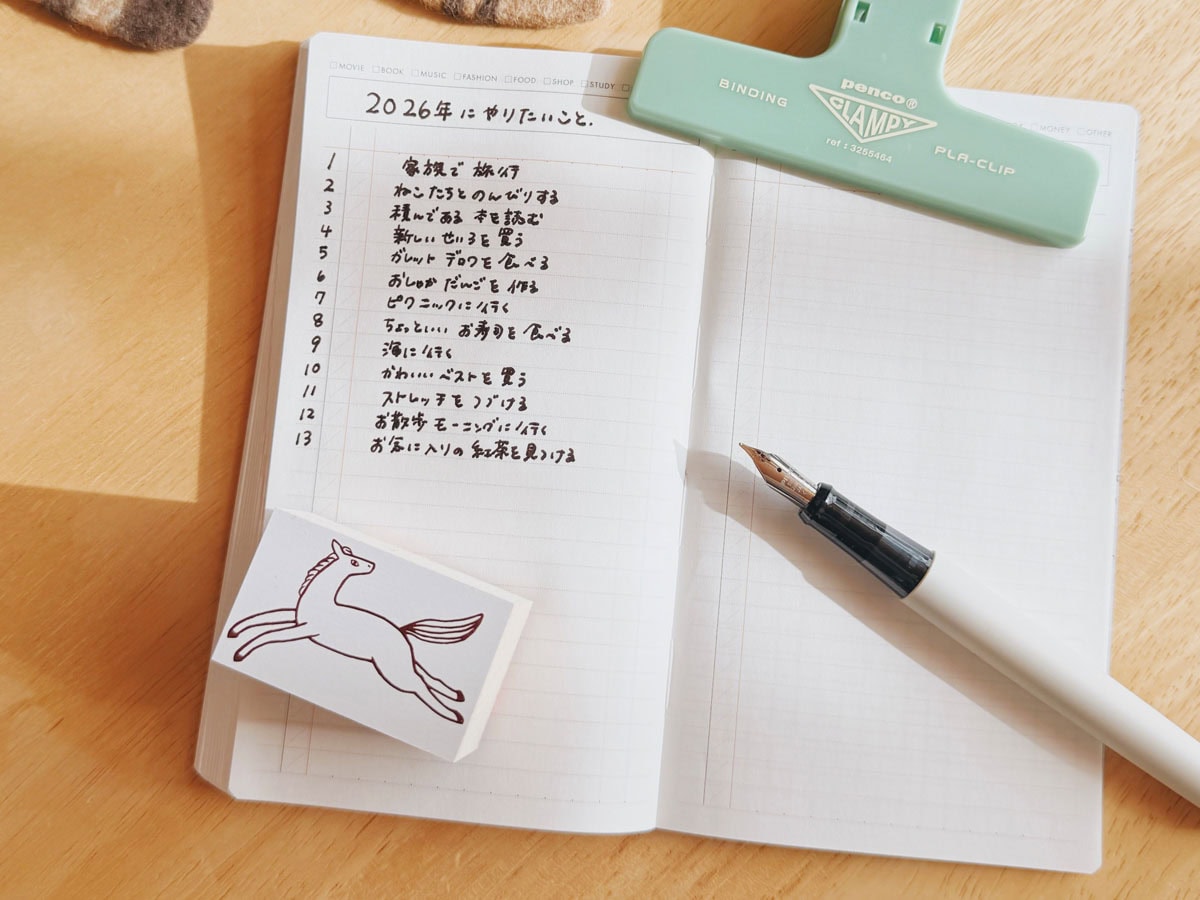 □MOVIE □BOOK □MUSIC □FASHION □FOOD □SHOP □STUDY
2026年にやりたいこと.
1 家族で旅行
2 ねこたちとのんびりする
3 積んである本を読む
4 新しいせいろを買う
5 ガレットデロワを食べる
6 おしゃかだんごを作る
7 ピクニックに行く
8 ちょっといいお寿司を食べる
9 海に行く
10 かわいいベストを買う
11 ストレッチをつづける
12 お散歩モーニングに行く
13 お気に入りの紅茶を見つける
BINDING
penco®
CLAMPY
ref : 3255464
PLA-CLIP
□MONEY □OTHER